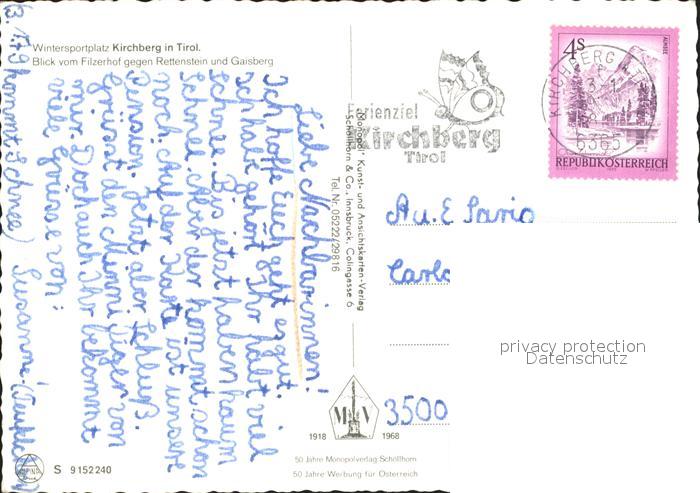 Wintersportplatz Kirchberg in Tirol.
Blick vom Filzerhof gegen Rettenstein und Gaisberg
Liebe Nachbarinnen!
Ich hoffe Euch geht es gut.
Ich habe gehört Ihr habt viel
Schnee. Bis jetzt haben kaum
Schnee. Aber der kommt schon
noch. Auf der Karte ist unsere
Pension. Jetzt aber Schluß.
Grüßt den
mir Doch ach Ihr bekommt
viele Grüsse von:
Susanne
kommt Schnee)
"Monopol" Kunst- und Ansichtskarten-Verlag
Schöllhorn & Co., Innsbruck, Colingasse 6
Tel. Nr. 05222/29816
Ferienziel
Kirchberg
Tirol
4S
ALMSEE
KIRCHBERG
6365
REPUBLIK ÖSTERREICH
An E
3500
privacy protection
Datenschutz
M V
1918 1968
50 Jahre Monopolverlag Schöllhorn
50 Jahre Werbung für Österreich
S 9152240